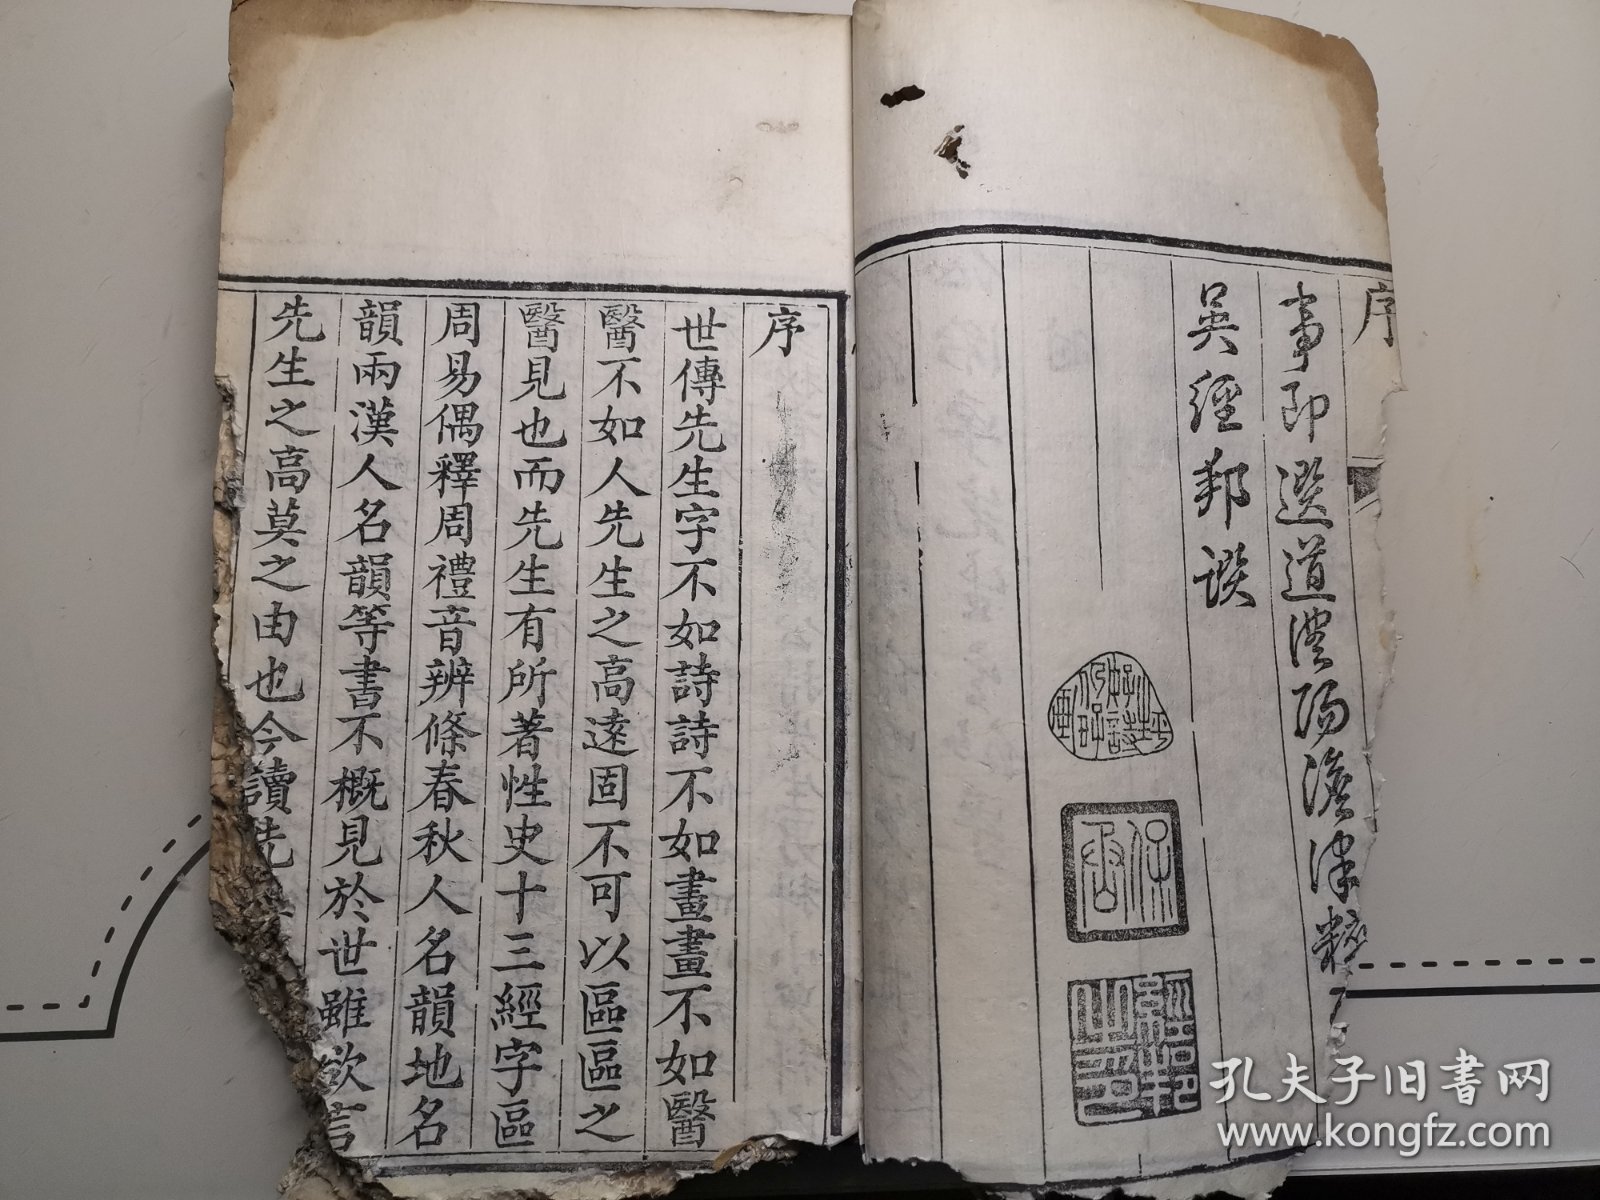 序
事即選道澧陽澹津
吳經邦譔
序
世傳先生字不如詩詩不如畫畫不如醫
醫不如人先生之高遠固不可以區區之
醫見也而先生有所著性史十三經字區
周易偶釋周禮音辨條春秋人名韻地名
韻兩漢人名韻等書不概見於世雖欲言
先生之高莫之由也今讀先
孔夫子旧书网
www.kongfz.com